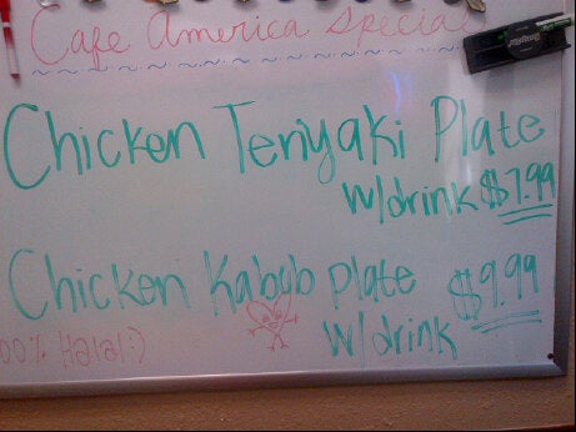 Cafe America Special
Chicken Teriyaki Plate
w/drink $7.99
Chicken Kabob plate $9.99
00% Halal:) w/drink